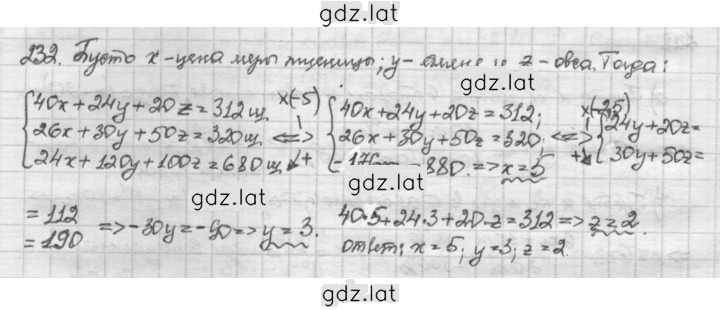 gdz.lat
232. Пусть x - цена меры пшеницы; y - ячменя и z - овса. Тогда:
{40x+24y+20z=312ш. 26x+30y+50z=320ш. 24x+120y+100z=680ш. ×(-5) + <=> {40x+24y+20z=312; 26x+30y+50z=320; -176x=-880. => x=5 ×(-2,5) + <=> {24y+20z= 30y+50z=
gdz.lat gdz.lat
=112 =190 => -30y=-90 => y=3. 40·5+24·3+20·z=312 => z=2.
ответ: x=5; y=3; z=2.
gdz.lat